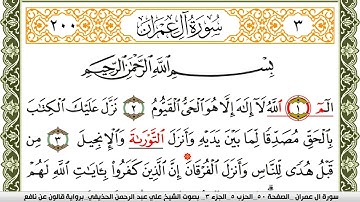 ٢٠٠ سُورَةُ آلِ عِمْرَانَ ٣
بِسْمِ اللَّهِ الرَّحْمَٰنِ الرَّحِيمِ
أَلَمِّ ١ اللَّهُ لَا إِلَٰهَ إِلَّا هُوَ الْحَيُّ الْقَيُّومُ ٢ نَزَّلَ عَلَيْكَ الْكِتَٰبَ
بِالْحَقِّ مُصَدِّقًا لِّمَا بَيْنَ يَدَيْهِ وَأَنزَلَ التَّوْرَىٰةَ وَالْإِنجِيلَ ٣ مِن
قَبْلُ هُدًى لِّلنَّاسِ وَأَنزَلَ الْفُرْقَانَ إِنَّ الَّذِينَ كَفَرُواْ بِـَٔايَٰتِ اللَّهِ لَهُمْ
سورة آل عمران . الصفحة ٥٠ . الحزب ٥ . الجزء ٣ . بصوت الشيخ علي عبد الرحمن الحذيفي . برواية قالون عن نافع